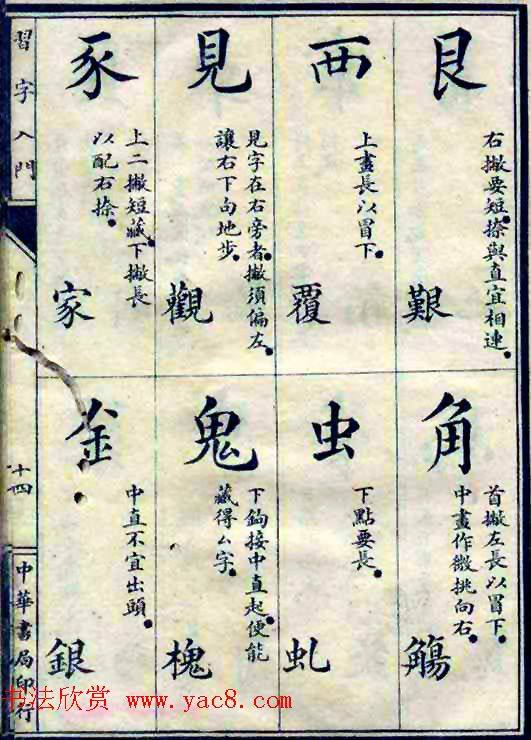 艮
右撇要短。捺與直宜相連。
艱
西
上畫長以冒下。
覆
見
見字在右旁者。撇須偏左。
讓右下勾地步。
觀
豕
上二撇短藏。下撇長
以配右捺。
家
角
首撇左長以冒下。
中畫作微挑向右。
觴
虫
下點要長。
虬
鬼
下鉤接中直起。便能
藏得厶字。
槐
金
中直不宜出頭。
銀
習字入門
十四
中華書局印行
书法欣赏 www.yac8.com